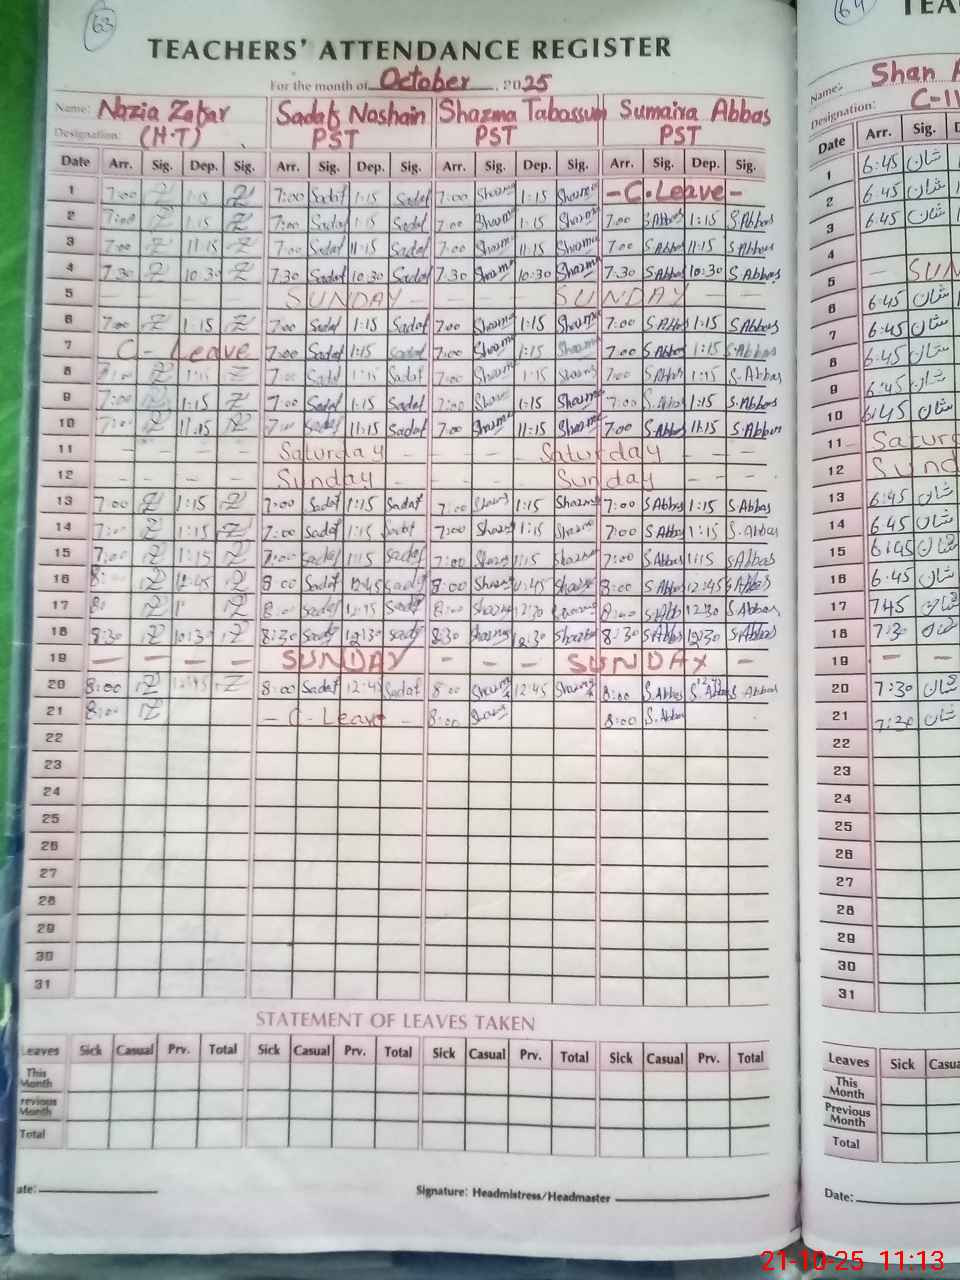 63
TEACHERS' ATTENDANCE REGISTER
For the month of October, 2025
Name: Nazia Zafar Sadaf Noshain Shazma Tabassum Sumaira Abbas
Designation: (H.T) PST PST PST
Date Arr. Sig. Dep. Sig. Arr. Sig. Dep. Sig. Arr. Sig. Dep. Sig. Arr. Sig. Dep. Sig.
1 7:00 Z 1:15 Z 7:00 Sadaf 1:15 Sadaf 7:00 Shazma 1:15 Shazma - C.Leave -
2 7:00 Z 1:15 Z 7:00 Sadaf 1:15 Sadaf 7:00 Shazma 1:15 Shazma 7:00 S.Abbas 1:15 S.Abbas
3 7:00 Z 11:15 Z 7:00 Sadaf 11:15 Sadaf 7:00 Shazma 11:15 Shazma 7:00 S.Abbas 11:15 S.Abbas
4 7:30 Z 10:30 Z 7:30 Sadaf 10:30 Sadaf 7:30 Shazma 10:30 Shazma 7:30 S.Abbas 10:30 S.Abbas
5 - - - - SUNDAY - - - SUNDAY - -
6 7:00 Z 1:15 Z 7:00 Sadaf 1:15 Sadaf 7:00 Shazma 1:15 Shazma 7:00 S.Abbas 1:15 S.Abbas
7 C - Leave 7:00 Sadaf 1:15 Sadaf 7:00 Shazma 1:15 Shazma 7:00 S.Abbas 1:15 S.Abbas
8 7:00 Z 1:15 Z 7:00 Sadaf 1:15 Sadaf 7:00 Shazma 1:15 Shazma 7:00 S.Abbas 1:15 S.Abbas
9 7:00 Z 1:15 Z 7:00 Sadaf 1:15 Sadaf 7:00 Shazma 1:15 Shazma 7:00 S.Abbas 1:15 S.Abbas
10 7:00 Z 11:15 Z 7:00 Sadaf 11:15 Sadaf 7:00 Shazma 11:15 Shazma 7:00 S.Abbas 11:15 S.Abbas
11 - - - - Saturday - - - Saturday - -
12 - - - - Sunday - - - Sunday - -
13 7:00 Z 1:15 Z 7:00 Sadaf 1:15 Sadaf 7:00 Shazma 1:15 Shazma 7:00 S.Abbas 1:15 S.Abbas
14 7:00 Z 1:15 Z 7:00 Sadaf 1:15 Sadaf 7:00 Shazma 1:15 Shazma 7:00 S.Abbas 1:15 S.Abbas
15 7:00 Z 1:15 Z 7:00 Sadaf 1:15 Sadaf 7:00 Shazma 1:15 Shazma 7:00 S.Abbas 1:15 S.Abbas
16 8: Z 12:45 Z 8:00 Sadaf 12:45 Sadaf 8:00 Shazma 12:45 Shazma 8:00 S.Abbas 12:45 S.Abbas
17 8: Z Z 8:00 Sadaf Sadaf 8:00 Shazma 12:30 Shazma 8:00 S.Abbas 12:30 S.Abbas
18 8:30 Z Z 8:30 Sadaf 12:30 Sadaf 8:30 Shazma 12:30 Shazma 8:30 S.Abbas 12:30 S.Abbas
19 - - - - SUNDAY - - - SUNDAY -
20 8:00 Z 12:45 Z 8:00 Sadaf 12:45 Sadaf 8:00 Shazma 12:45 Shazma 8:00 S.Abbas 12:45 S.Abbas S.Abbas
21 8:00 Z - C - Leave - 8:00 Shazma 8:00 S.Abbas
22
23
24
25
26
27
28
29
30
31
STATEMENT OF LEAVES TAKEN
Leaves Sick Casual Prv. Total Sick Casual Prv. Total Sick Casual Prv. Total Sick Casual Prv. Total
This Month
Previous Month
Total
Date: Signature: Headmistress/Headmaster
64
TEA
Name: Shan
Designation: C-IV
Date Arr. Sig.
1 6:45 شان
2 6:45 شان
3 6:45 شان
4
5 - SUN
6 6:45 شان
7 6:45 شان
8 6:45 شان
9 6:45 شان
10 6:45 شان
11 Satur
12 Sund
13 6:45 شان
14 6:45 شان
15 6:45 شان
16 6:45 شان
17 7:45 شان
18 7:30 شان
19 - -
20 7:30 شان
21 7:30 شان
22
23
24
25
26
27
28
29
30
31
Leaves Sick Casual
This Month
Previous Month
Total
Date:
21-10-25 11:13